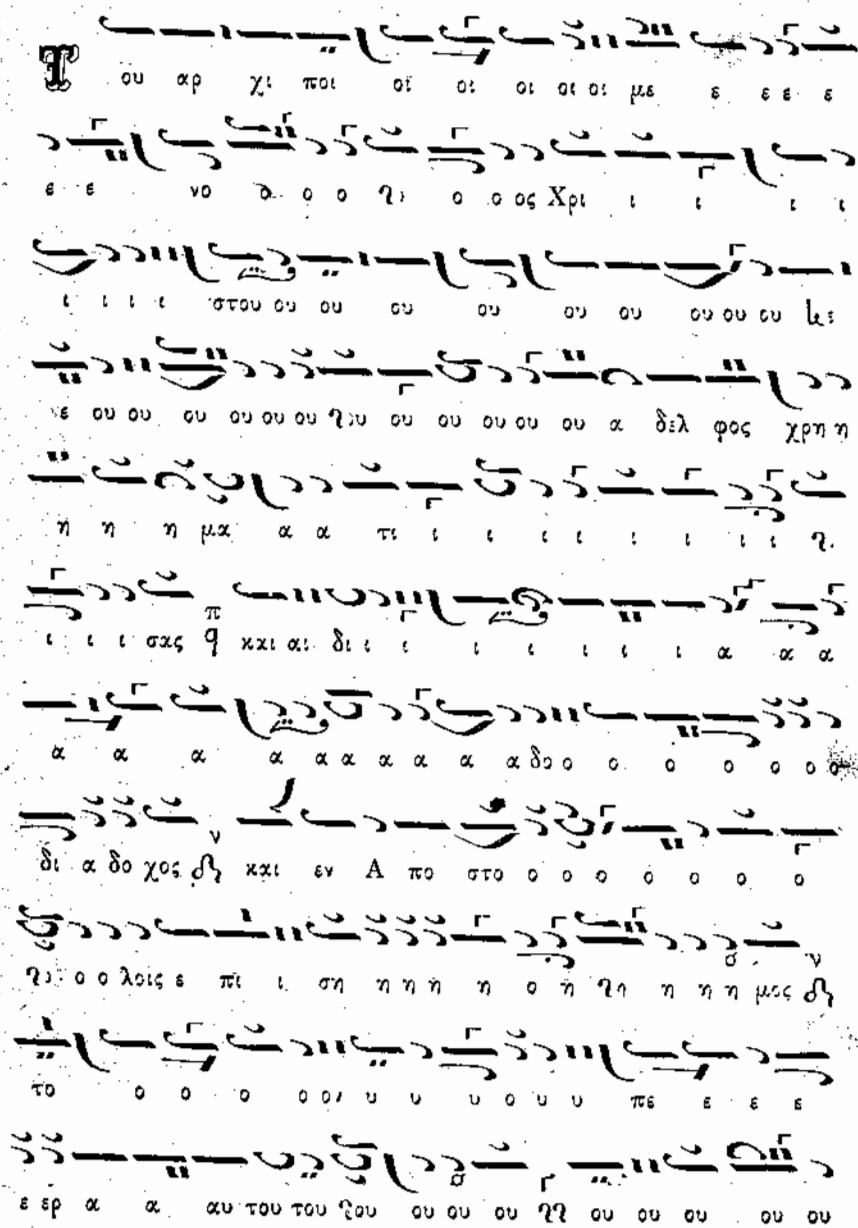 Τ ου αρ χι ποι οι οι οι οι οι με ε ε ε ε
ε ε νο ο ο ο ο ο ος Χρι ι ι ι ι
ι ι ι ι στου ου ου ου ου ου ου ου ου ου
ε ου ου ου ου ου ου ου ου ου ου ου ου α δελ φος χρη η
η η η μα α α τι ι ι ι ι ι ι ι ι
ι ι ι σας π q και αι δι ι ι ι ι ι ι ι α α α
α α α α α α α α α α δο ο ο ο ο ο ο ο
δι α δο χος ν και εν Α πο στο ο ο ο ο ο ο ο
ο ο λοις ε πι ι ση η η η η ο η η η η μος ν
το ο ο ο ο ο υ υ υ ο υ υ πε ε ε ε
ε ερ α α αυ του του ου ου ου ου ου ου ου ου ου